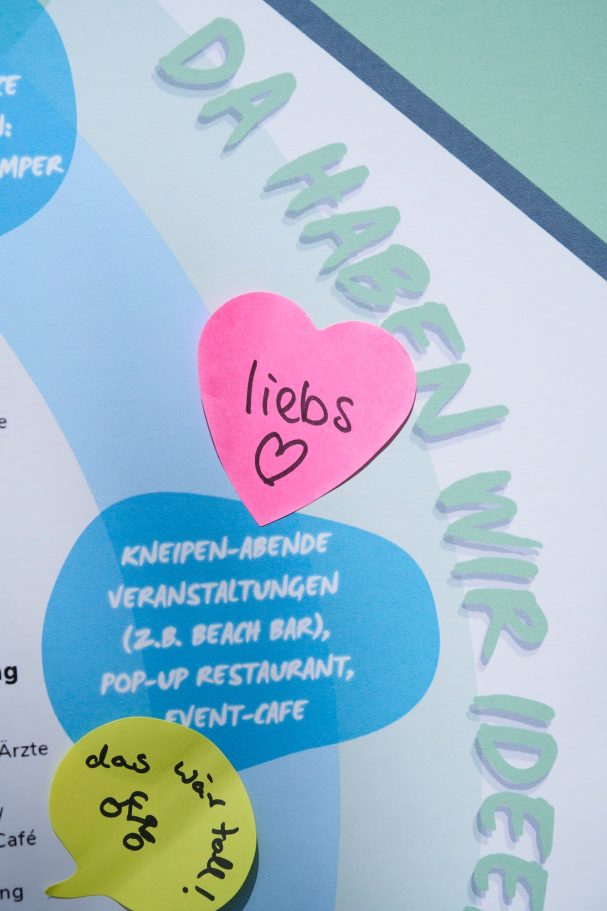 DA HABEN WIR IDEE
MPER
liebs
KNEIPEN-ABENDE
VERANSTALTUNGEN
(Z.B. BEACH BAR),
POP-UP RESTAURANT,
EVENT-CAFE
ng
Ärzte
das wär toll!
Café
ng